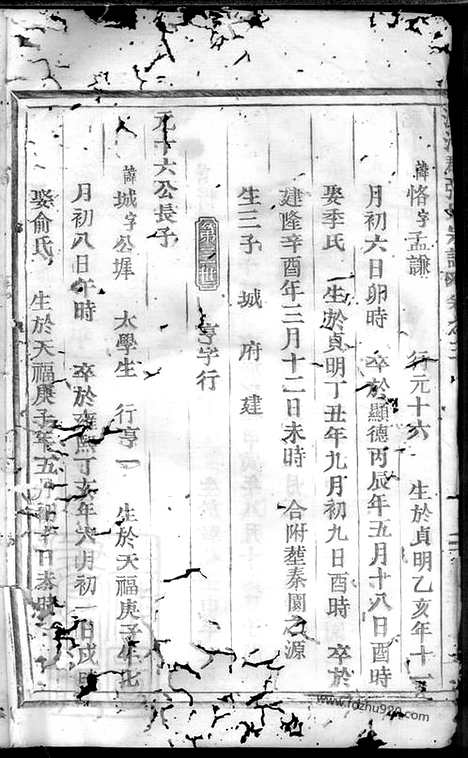 諱恪字孟謙　行元十六　生於貞明乙亥年十
月初六日卯時　卒於顯德丙辰年五月十八日酉時
娶季氏　生於貞明丁丑年九月初九日酉時　卒於
建隆辛酉年三月十二日未時　合附塟秦園之源
生三子　城　府　建
亨字行
元十六公長子
諱城字公墀　太學生　行亨一　生於天福庚子年
月初八日午時　卒於雍熙丁亥年六月初一日戌
娶俞氏　生於天福庚子年五月初十日未時
www.fozhu920.com